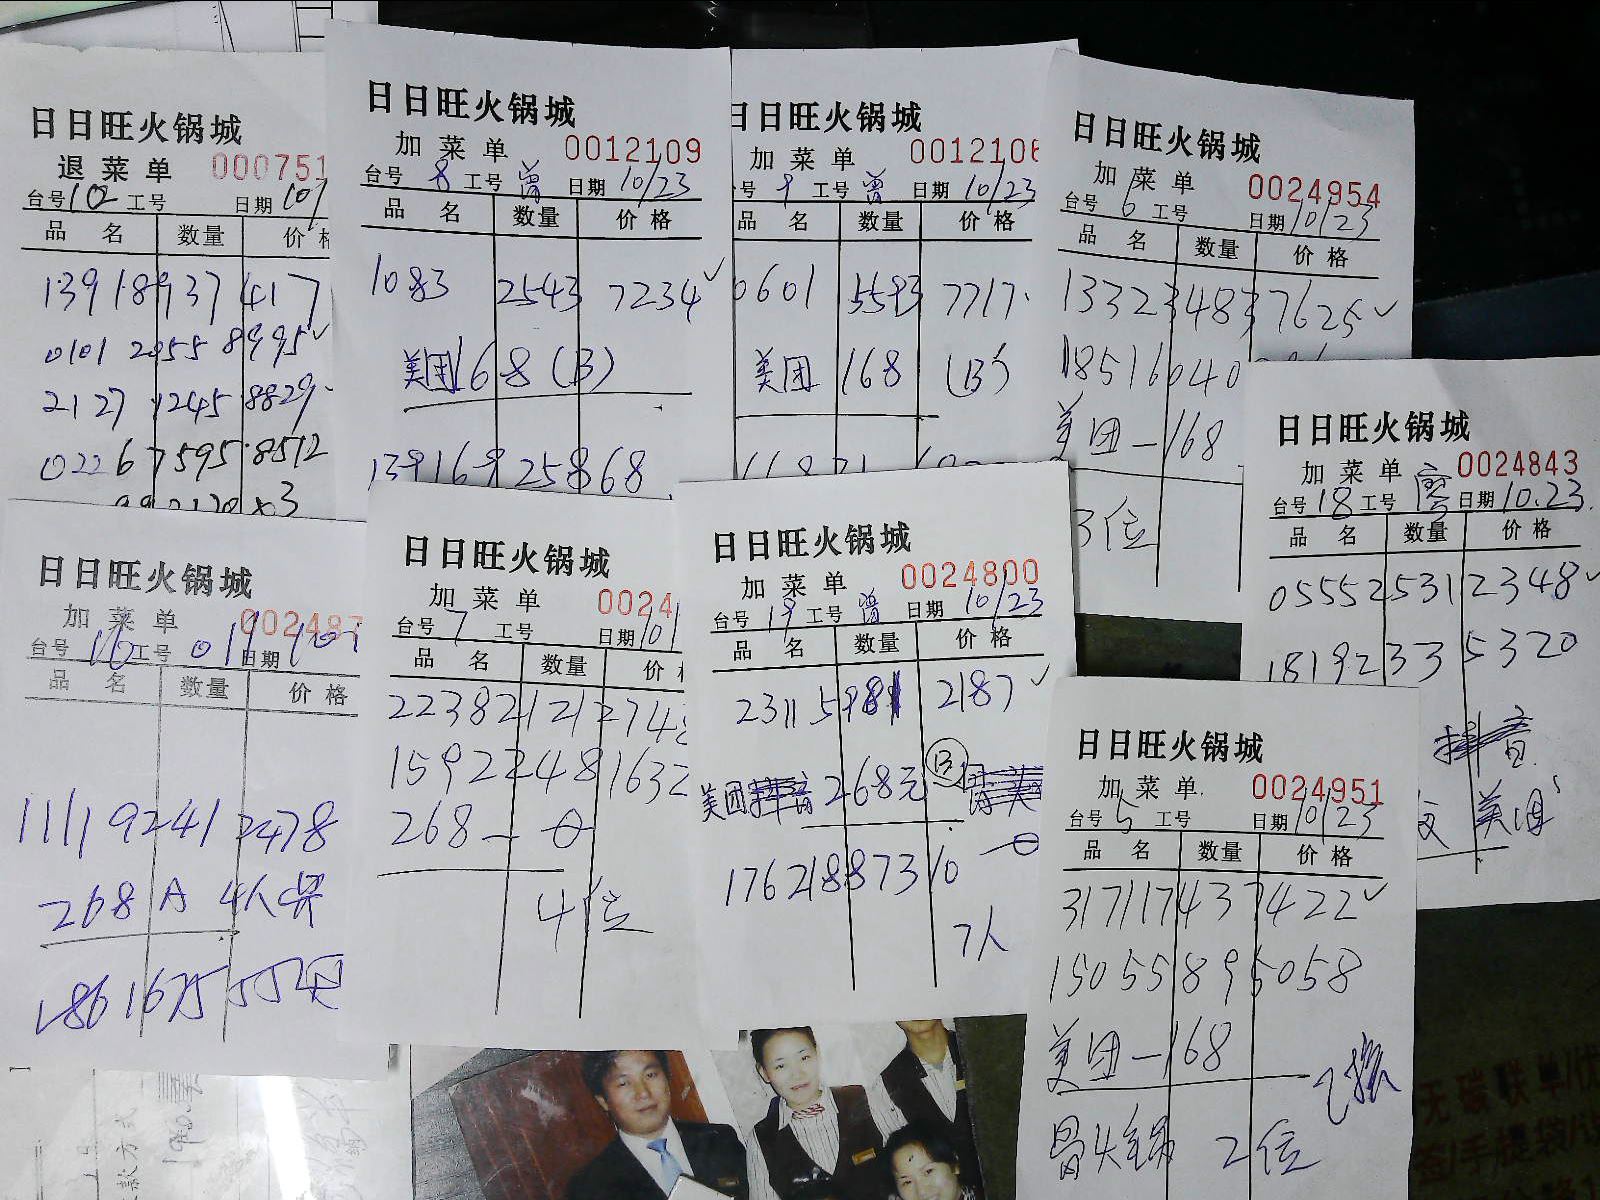 日日旺火锅城
退菜单 000751
台号102 工号 日期10/
品 名 数量 价格
13918937417
0101 2055 8995✓
2127 1245 8829
0226 7595 8512
日日旺火锅城
加菜单 0012109
台号8 工号曾 日期10/23
品 名 数量 价格
1083 2543 7234✓
美团168(B)
13916925868
日日旺火锅城
加菜单 0012106
号9 工号曾 日期10/23
品 名 数量 价格
0601 5593 7717
美团 168 (B)
日日旺火锅城
加菜单 0024954
台号6 工号 日期10/23
品 名 数量 价格
133234837625✓
18516040
美团-168
3位
日日旺火锅城
加菜单 0024843
台号18 工号廖 日期10.23
品 名 数量 价格
055525312348✓
18192335320
抖音
美团
日日旺火锅城
加菜单 002487
台号10 工号01 日期10
品 名 数量 价格
111192412478
268 A 4人
1861675
日日旺火锅城
加菜单 0024
台号7 工号 日期10/
品 名 数量 价
22382121274
15922481632
268-
4位
日日旺火锅城
加菜单 0024800
台号19 工号曾 日期10/23
品 名 数量 价格
2311598 2187✓
美团 268元 B
17621887310
7人
日日旺火锅城
加菜单 0024951
台号5 工号 日期10/23
品 名 数量 价格
317117437422✓
15055895058
美团-168
骨火锅 2位
款方式
无碳联单/优
签/手提袋/